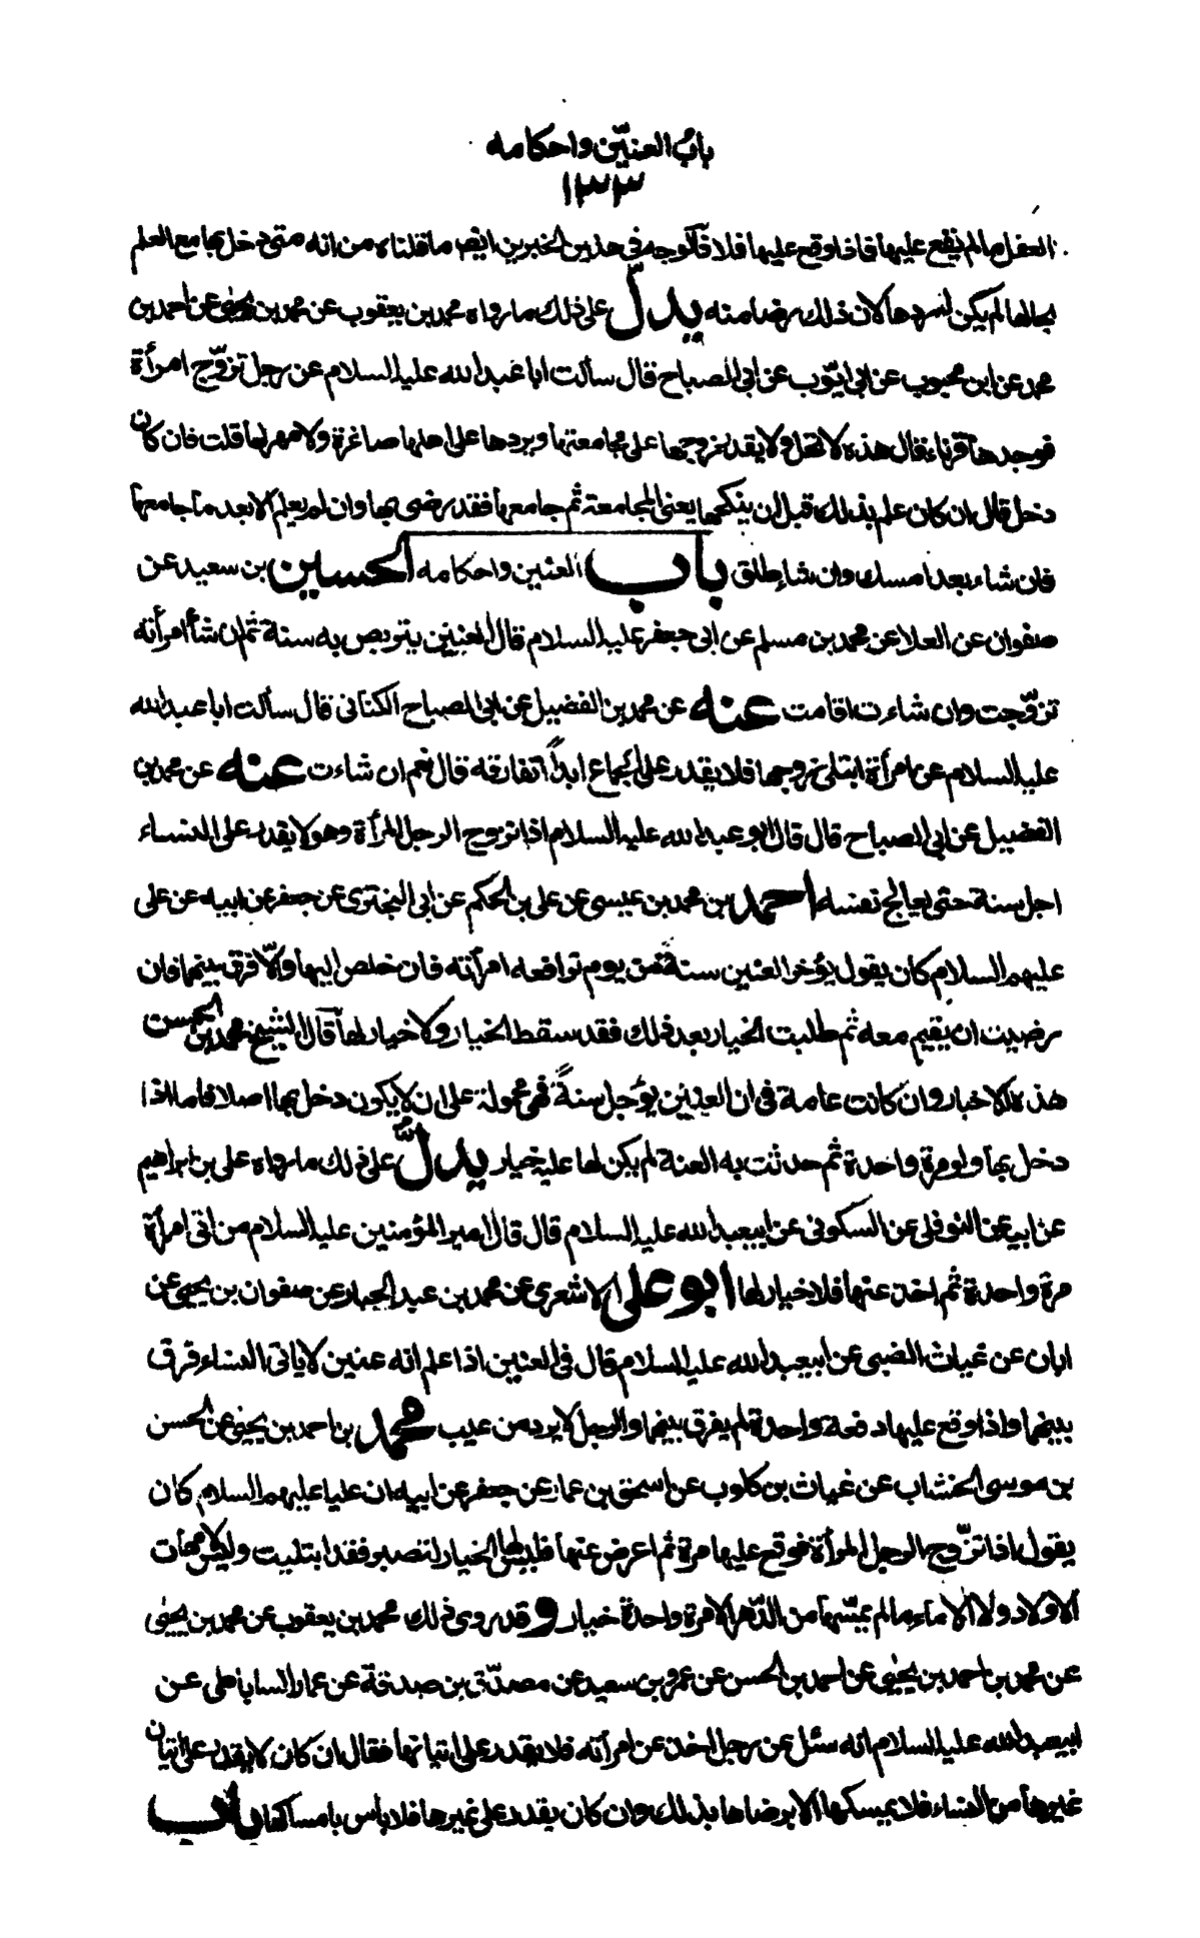 باب العنين واحكامه
١٣٣
العفل مالم يقع عليها فاذا وقع عليها فلا فالوجه في هذين الخبرين ايضا ما قلناه من انه متى دخل بها مع العلم
بحالها لم يكن له ردها لان ذلك رضا منه يدلّ على ذلك ما رواه محمد بن يعقوب عن محمد بن يحيى عن احمد بن
محمد عن ابن محبوب عن ابى ايّوب عن ابى الصباح قال سألت ابا عبد الله عليه السلام عن رجل تزوّج امرأة
فوجدها قرناء قال هذه لا تحبل ولا يقدر زوجها على مجامعتها ويردها على اهلها صاغرة ولا مهر لها قلت فان كان
دخل قال ان كان علم بذلك قبل ان ينكحها يعنى المجامعة ثم جامعها فقد رضى بها وان لم يعلم الا بعد ما جامعها
فان شاء بعد امسك وان شاء طلق باب العنين واحكامه الحسين بن سعيد عن
صفوان عن العلا عن محمد بن مسلم عن ابى جعفر عليه السلام قال العنين يتربص به سنة ثم ان شاأ امرأته
تزوّجت وان شاءت اقامت عنه عن محمد بن الفضيل عن ابى الصباح الكنانى قال سألت ابا عبد الله
عليه السلام عن امرأة ابتلى زوجها فلا يقدر على الجماع ابداً اتفارقه قال نعم ان شاءت عنه عن محمد بن
الفضيل عن ابى الصباح قال قال ابو عبد الله عليه السلام اذا تزوج الرجل المرأة وهو لا يقدر على النساء
اجل سنة حتى يعالج نفسه احمد بن محمد بن عيسى عن على بن الحكم عن ابى البخترى عن جعفر عن ابيه عن على
عليهم السلام كان يقول يؤخر العنين سنة من يوم ترافعه امرأته فان خلص اليها والّا فرق بينهما فان
رضيت ان يقيم معه ثم طلبت الخيار بعد ذلك فقد سقط الخيار ولا خيار لها قال الشيخ محمد بن الحسن
هذه الاخبار وان كانت عامة فى ان العنين يؤجل سنةً فهى محمولة على ان لا يكون دخل بها اصلا فاما اذا
دخل بها ولو مرة واحدة ثم حدثت به العنة لم يكن لها عليه خيار يدلّ على ذلك ما رواه على بن ابراهيم
عن ابيه عن النوفلى عن السكونى عن ابيعبد الله عليه السلام قال قال امير المؤمنين عليه السلام من اتى امرأة
مرة واحدة ثم اخذ عنها فلا خيار لها ابو على الاشعرى عن محمد بن عبد الجبار عن صفوان بن يحيى عن
ابان عن غياث الضبى عن ابيعبد الله عليه السلام قال فى العنين اذا علم انه عنين لا ياتى النساء فرق
بينهما واذا وقع عليها دفعة واحدة لم يفرق بينهما والرجل لا يرد من عيب محمد بن احمد بن يحيى عن الحسن
بن موسى الخشاب عن غياث بن كلوب عن اسحق بن عمار عن جعفر عن ابيه ان عليا عليهم السلام كان
يقول اذا تزوّج الرجل المرأة فوقع عليها مرة ثم اعرض عنها فليس لها الخيار لتصبر فقد ابتليت وليس لامهات
الاولاد ولا الاماء ما لم يمسّها من الدّهر الا مرة واحدة خيار و قد روى ذلك محمد بن يعقوب عن محمد بن يحيى
عن محمد بن احمد بن يحيى عن احمد بن الحسن عن عمرو بن سعيد عن مصدّق بن صدقة عن عمار الساباطى عن
ابيعبد الله عليه السلام انه سئل عن رجل اخذ عن امرأته فلا يقدر على اتيانها فقال ان كان لا يقدر على اتيان
غيرها من النساء فلا يمسكها الا برضاها بذلك وان كان يقدر على غيرها فلا باس بامساكها باب